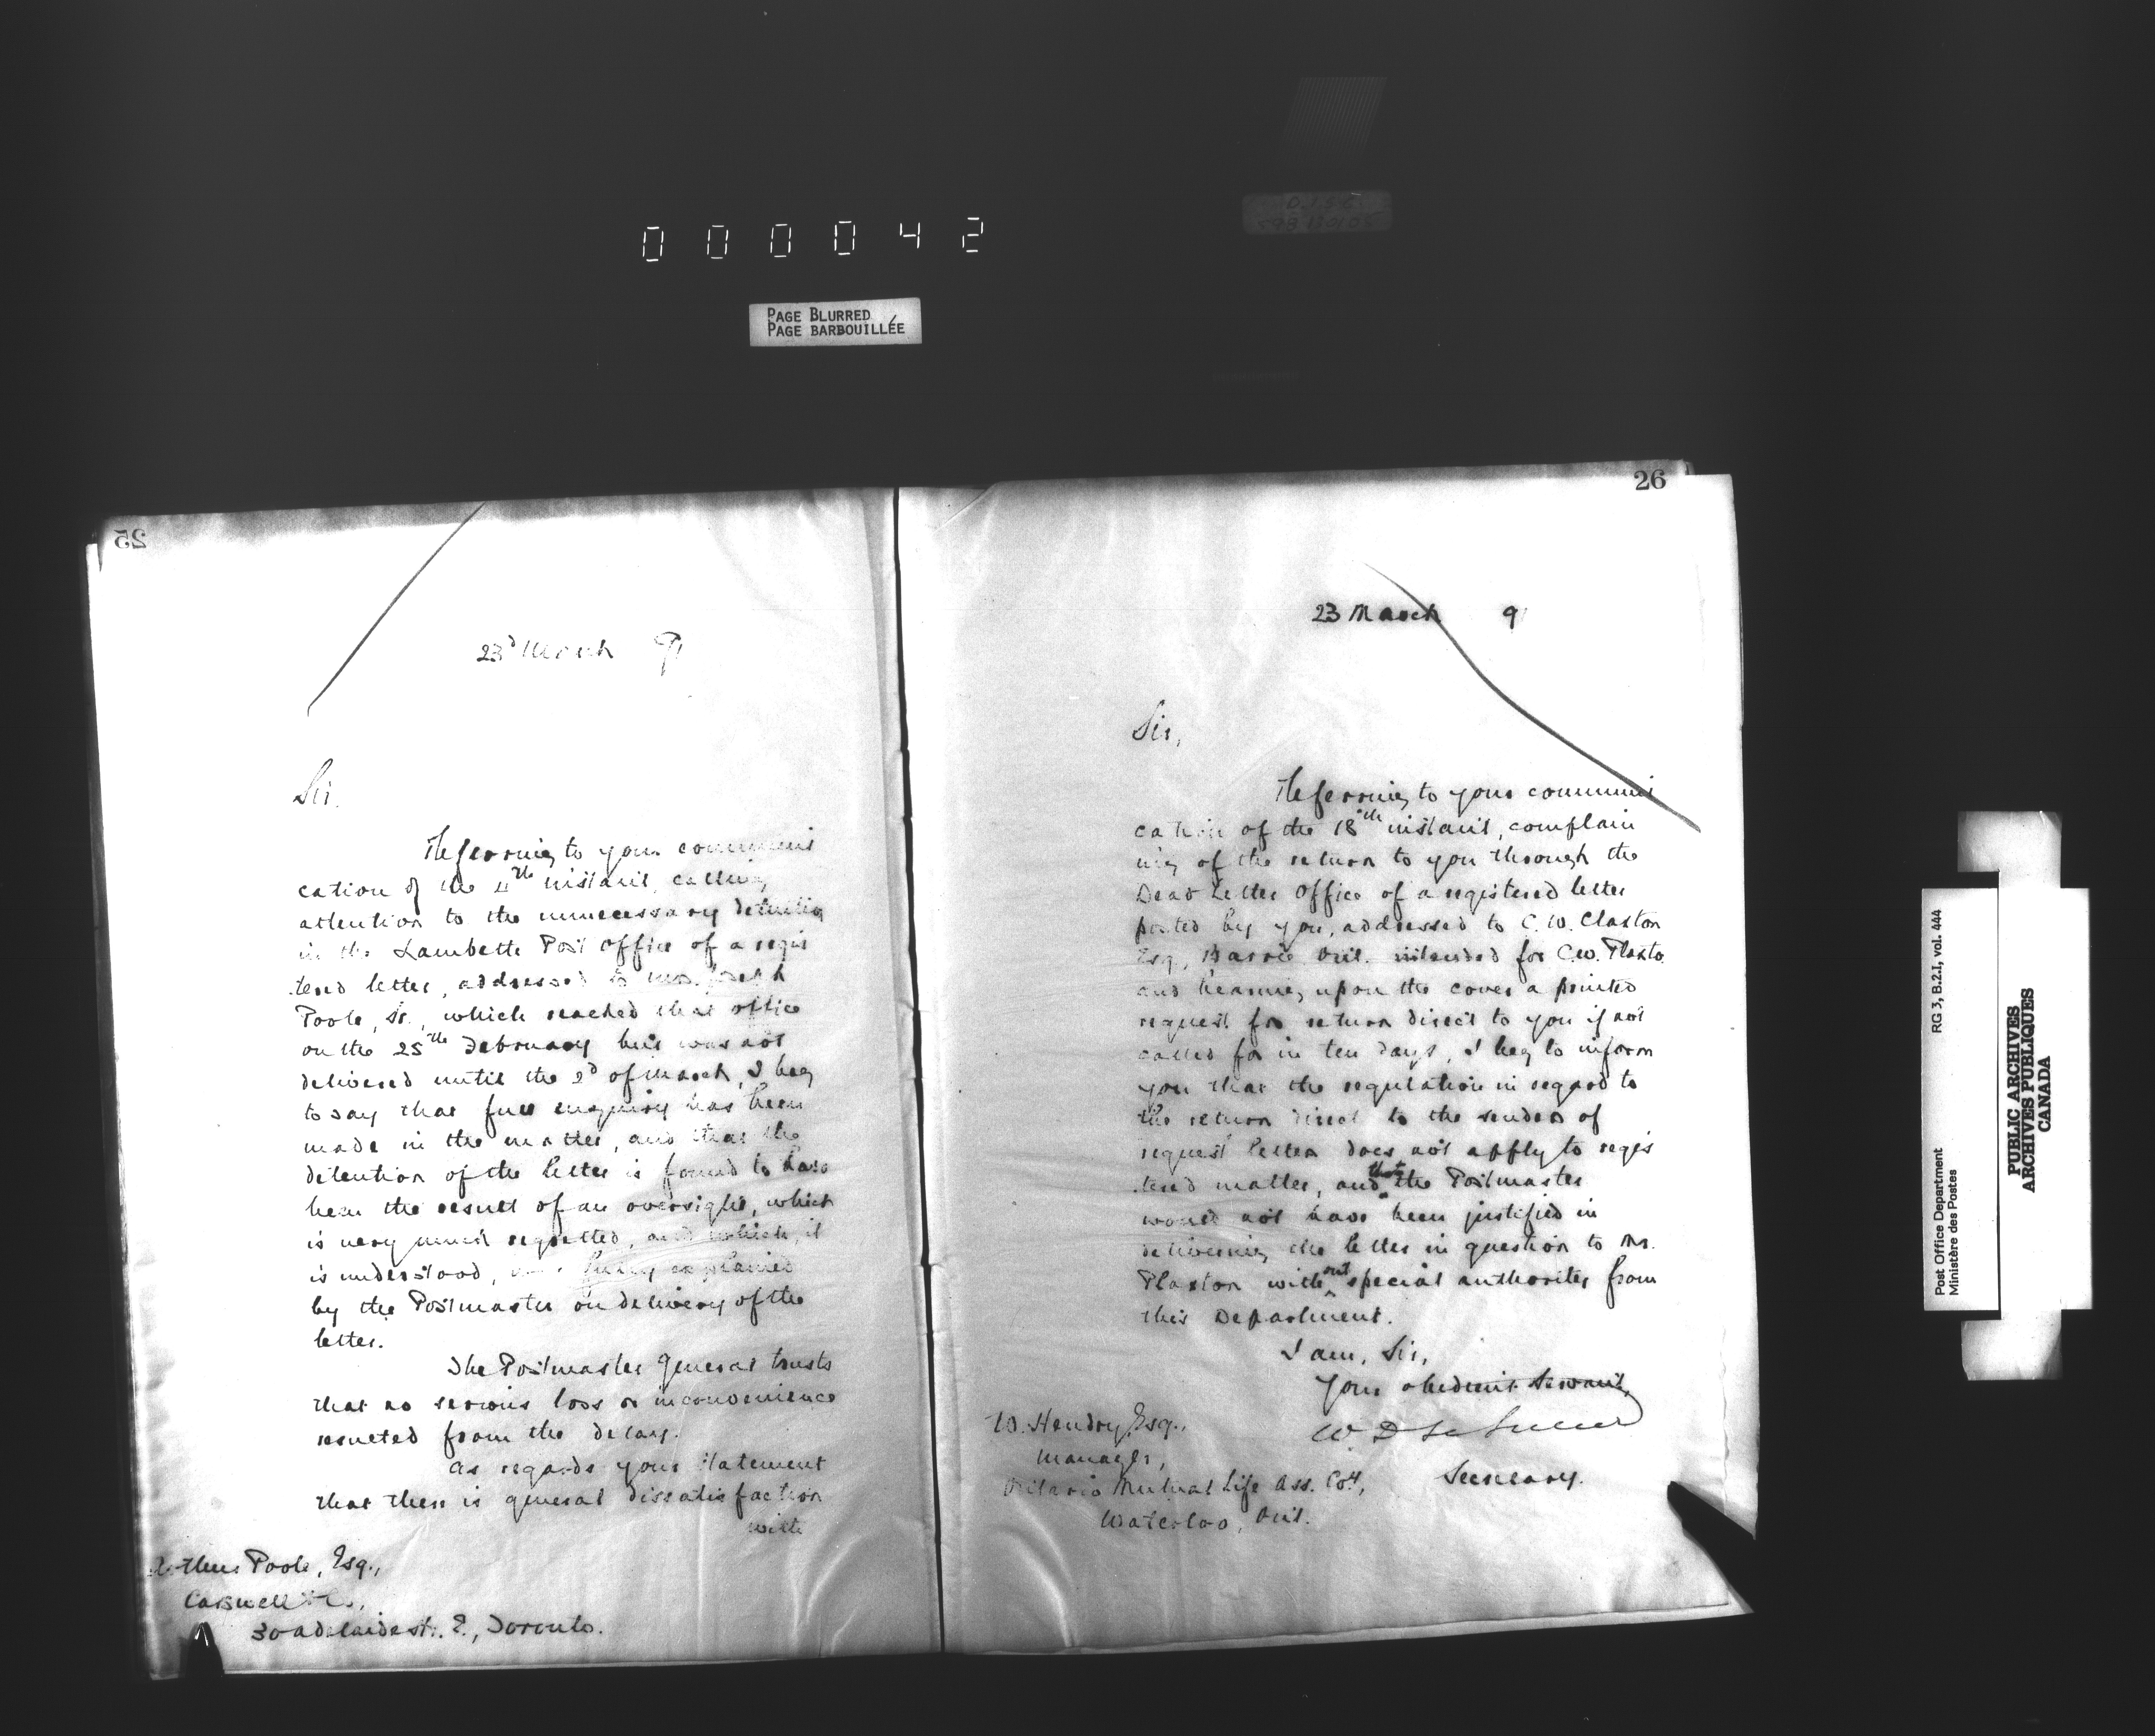 000042
PAGE BLURRED
PAGE BARBOUILLÉE
25
23d March 91
Sir.
Referring to your communi
cation of the 4th instant, calling
attention to the unnecessary detention
in the Lambeth Post Office of a regis
tered letter, addressed to
Poole, Sr., which reached that office
on the 25th February but was not
delivered until the 2d of March, I beg
to say that full enquiry has been
made in the matter, and that the
detention of the letter is found to have
been the result of an oversight, which
is very much regretted, and which, it
is understood, was fully explained
by the Postmaster on delivery of the
letter.
The Postmaster General trusts
that no serious loss or inconvenience
resulted from the delay.
As regards your statement
that there is general dissatisfaction
with
Arthur Poole, Esq.,
Carswell & Co.,
30 Adelaide St. E., Toronto.
26
23 March 91
Sir,
Referring to your communi
cation of the 18th instant, complain
ing of the return to you through the
Dead Letter Office of a registered letter
posted by you, addressed to C. W. Claxton
Esq., Barrie, Ont. intended for C.W. Plaxto
and bearing upon the cover a printed
request for return direct to you if not
called for in ten days, I beg to inform
you that the regulation in regard to
the return direct to the sender of
request letters does not apply to regis
tered matter, and that the Postmaster
would not have been justified in
delivering the letter in question to Mr.
Plaxton without special authority from
this Department.
I am, Sir,
Your obedient Servant,
W D LeSueur
Secretary.
W. Hendry, Esq.,
Manager,
Ontario Mutual Life Ass. Coy,
Waterloo, Ont.
RG 3, B.2.1, vol. 444
Post Office Department
Ministère des Postes
PUBLIC ARCHIVES
ARCHIVES PUBLIQUES
CANADA